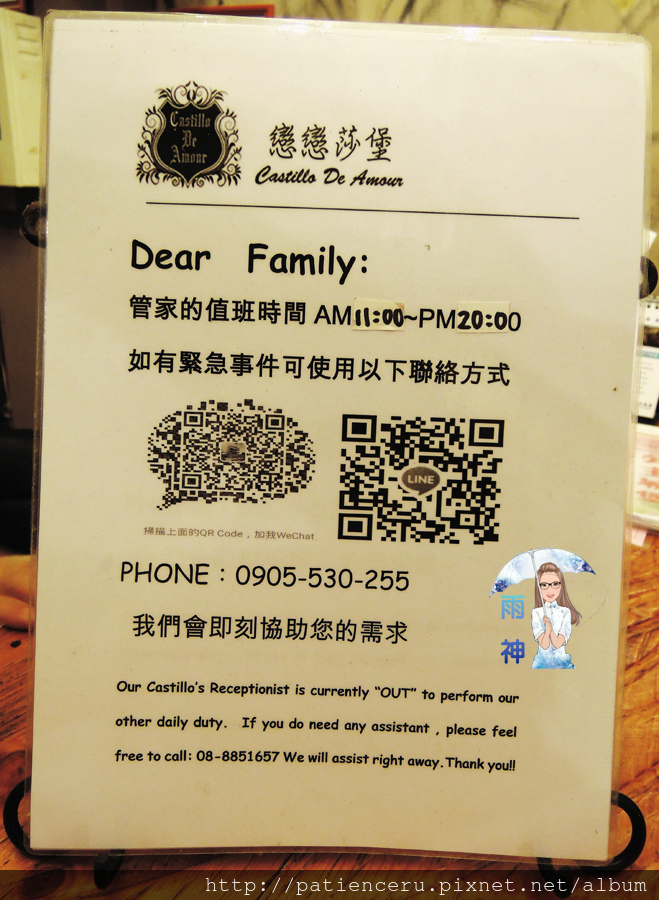 Castillo
De
Amour
戀戀莎堡
Castillo De Amour
Dear Family:
管家的值班時間 AM11:00~PM20:00
如有緊急事件可使用以下聯絡方式
LINE
掃描上面的QR Code，加我WeChat
PHONE：0905-530-255
我們會即刻協助您的需求
雨
神
Our Castillo's Receptionist is currently "OUT" to perform our
other daily duty. If you do need any assistant , please feel
free to call: 08-8851657 We will assist right away.Thank you!!
http://patienceru.pixnet.net/album